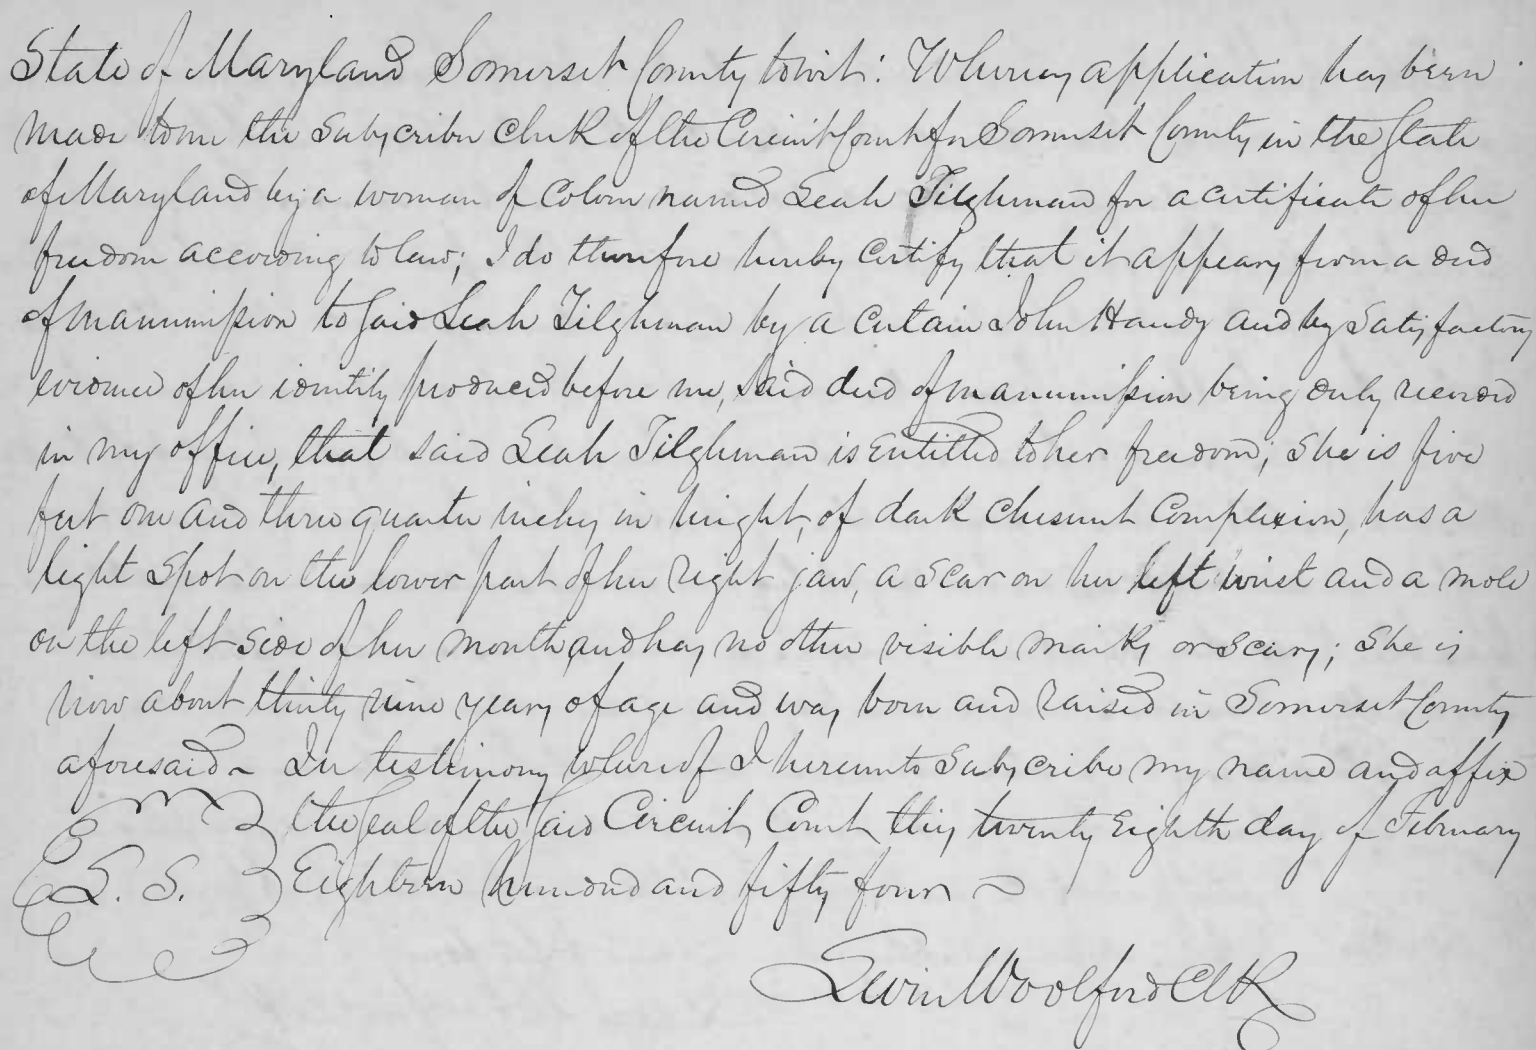 State of Maryland Somerset County towit: Whereas application has been
made to me the Subscriber Clerk of the Circuit Court for Somerset County in the State
of Maryland by a woman of Colour named Leah Tilghman for a certificate of her
freedom according to law; I do therefore hereby Certify that it appears from a deed
of manumission to said Leah Tilghman by a Certain John Handy and by Satisfactory
evidence of her identity produced before me, said deed of manumission being duly record
in my office, that said Leah Tilghman is Entitled to her freedom; She is five
feet one and three quarter inches in height, of dark Chesnut Complexion, has a
light Spot on the lower part of her right jaw, a Scar on her left wrist and a mole
on the left side of her mouth, and has no other visible marks or Scars; She is
now about thirty nine years of age and was born and raised in Somerset County
aforesaid ~ In testimony whereof I hereunto Subscribe my name and affix
the seal of the said Circuit Court this twenty Eighth day of February
L. S. Eighteen hundred and fifty four ~
Levin Woolford Clk